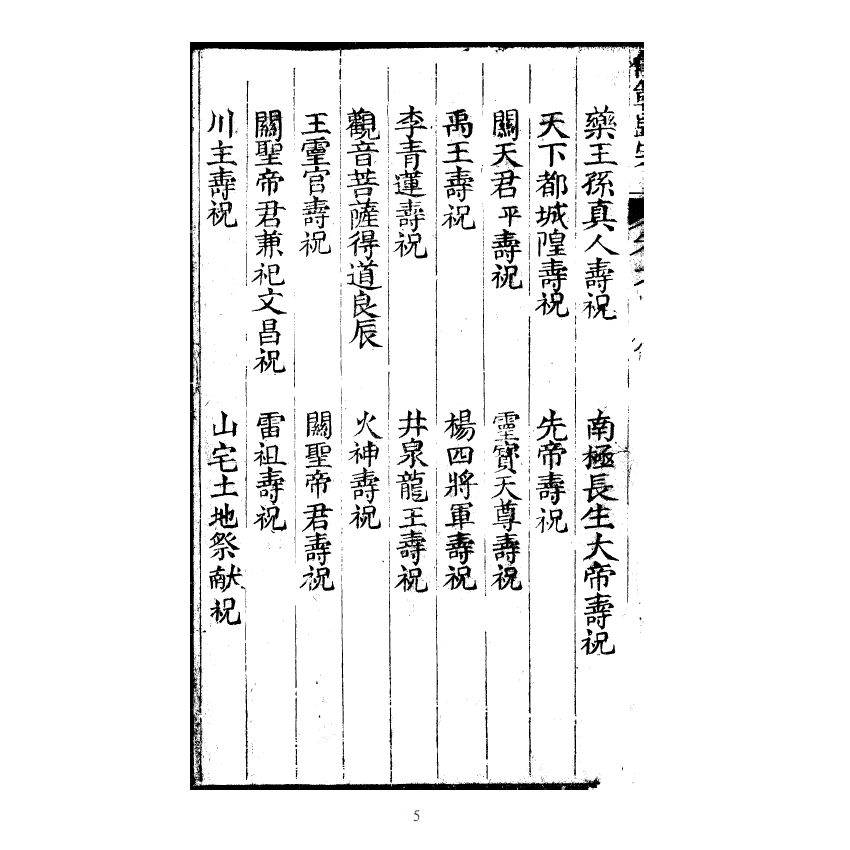 藥王孫真人壽祝
南極長生大帝壽祝
天下都城隍壽祝
先帝壽祝
關天君平壽祝
靈寶天尊壽祝
禹王壽祝
楊四將軍壽祝
李青蓮壽祝
井泉龍王壽祝
觀音菩薩得道良辰
火神壽祝
王靈官壽祝
關聖帝君壽祝
關聖帝君兼祀文昌祝
雷祖壽祝
川主壽祝
山宅土地祭献祝
5